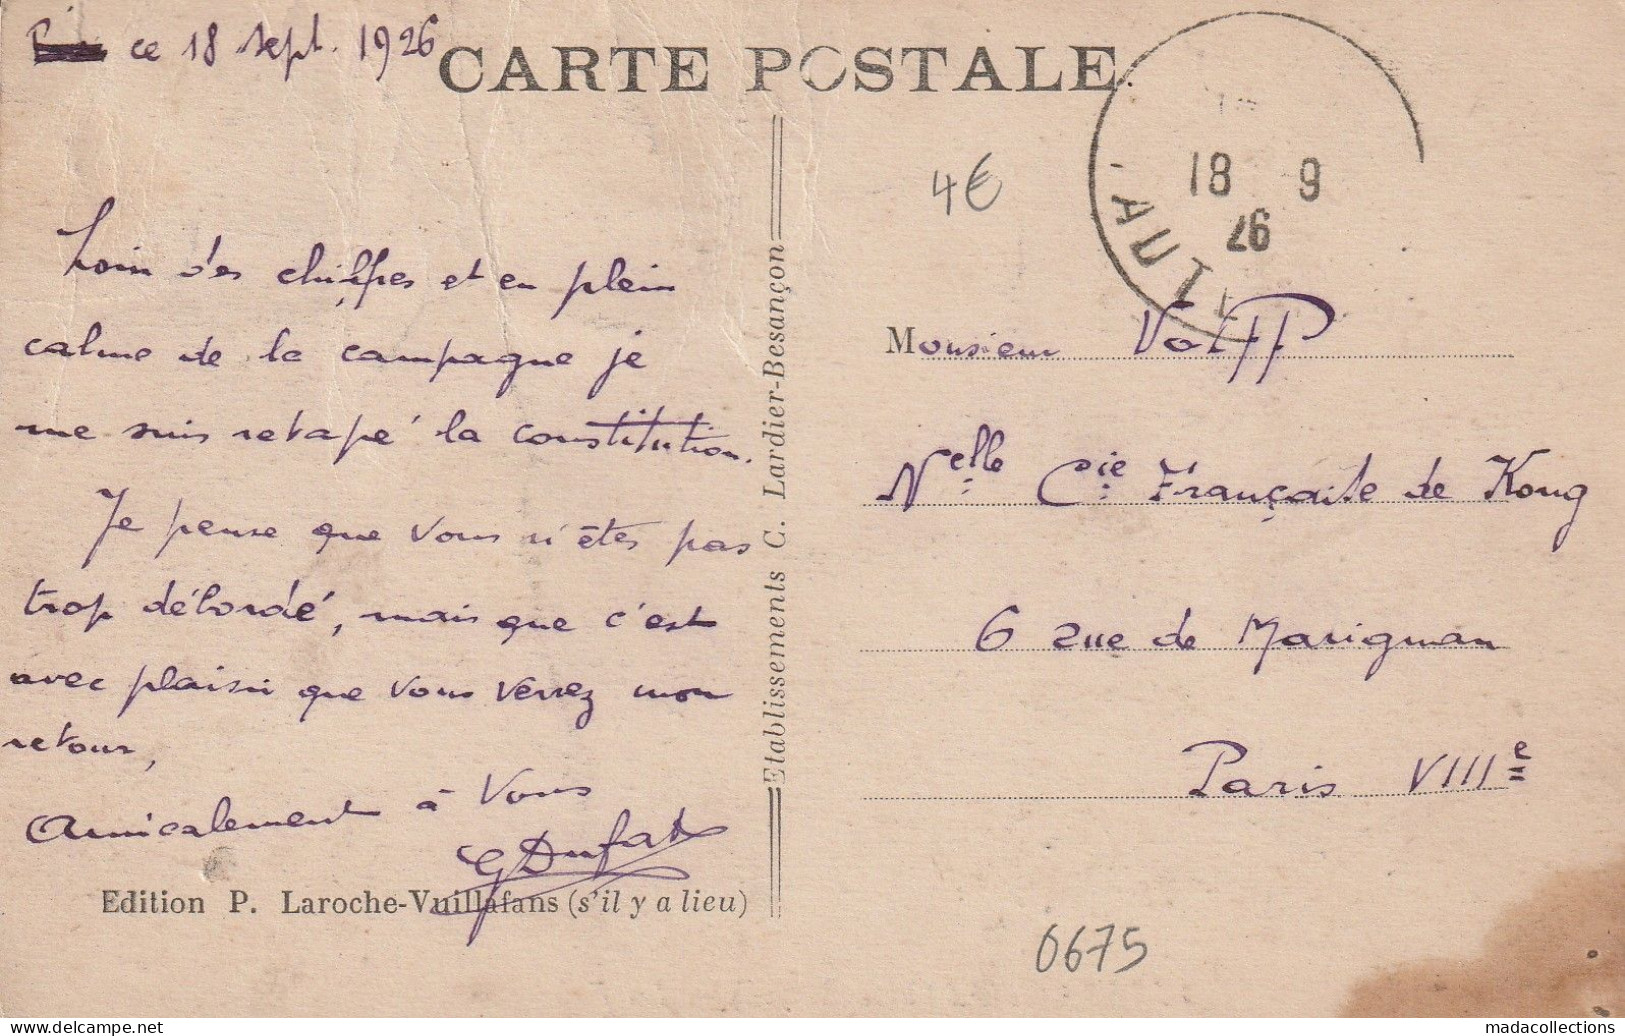 ce 18 sept. 1926
CARTE POSTALE.
Loin des chiffres et en plein
calme de la campagne je
me suis retapé la constitution.
Je pense que vous n'êtes pas
trop débordé, mais que c'est
avec plaisir que vous verrez mon
retour,
Amicalement à vous
G Dufat
Edition P. Laroche-Vuillafans (s'il y a lieu)
Etablissements C. Lardier-Besançon
4€
18 9
26
AUT
Monsieur Volff
Nelle Cie Française de Kong
6 rue de Marignan
Paris VIIIe
0675
madacollections